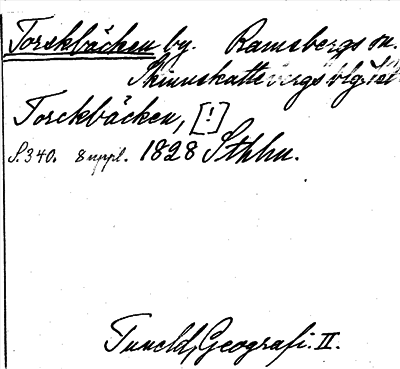 Torskbäcken by. Ramsbergs sn.
Skinnskattebergs blgslal
Torckbäcken, [!]
S. 340. Suppl. 1828 Sthlm.
Tuneld, Geografi. II.